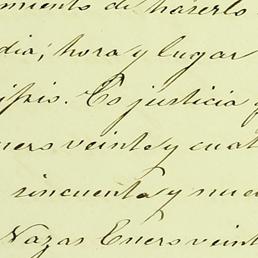 miento de haserlo
dia, hora y lugar
Es justicia
nero veinte y cuat
cincuenta y nue
Nazas Enero veint